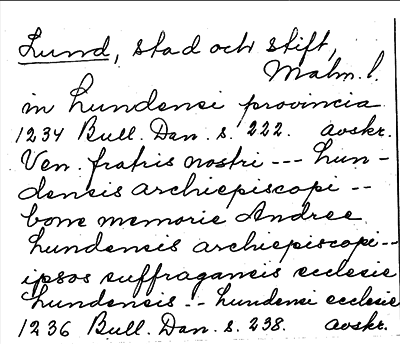 Lund, stad och stift,
Malm. l.
in Lundensi provincia
1234 Bull. Dan. s. 222. avskr.
Ven. fratris nostri --- Lun-
densis archiepiscopi --
bone memorie Andree
Lundensis archiepiscopi--
ipsos suffraganeis ecclesie
Lundensis -- Lundensi ecclesie
1236 Bull. Dan. s. 238. avskr.